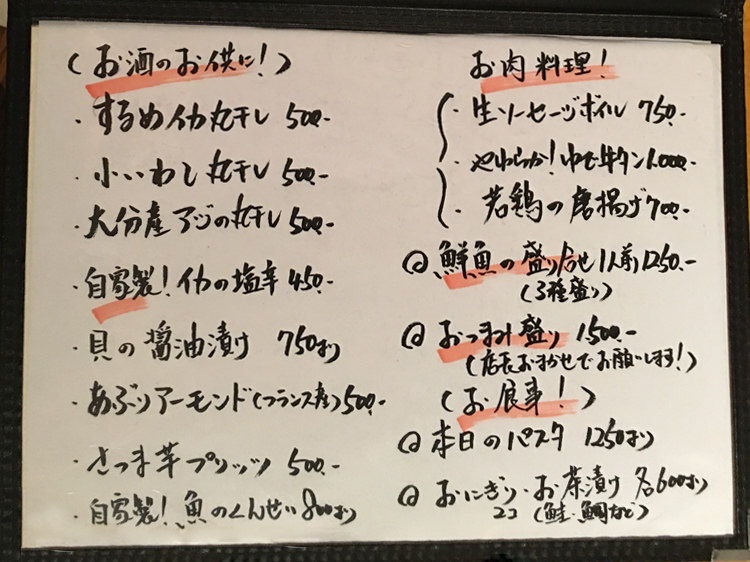 (お酒のお供に!)
・するめイカ丸干し 500.-
・小いわし丸干し 500.-
・大分産アジの丸干し 500.-
・自家製!イカの塩辛 450.-
・貝の醤油漬け 750より
・あぶりアーモンド(フランス産)500.-
・さつま芋プリッツ 500.-
・自家製!魚のくんせい 800より
お肉料理!
・生ソーセージボイル 750.-
・やわらか!ゆで牛タン 1.000.-
・若鶏の唐揚げ 700.-
◎鮮魚の盛り合せ 1人前 1250.-
(3種盛り)
◎おつまみ盛り 1500.-
(店長おまかせでお願いします!)
(お食事!)
◎本日のパスタ 1250より
◎おにぎり・お茶漬け 各600より
2コ (鮭・鯛など)